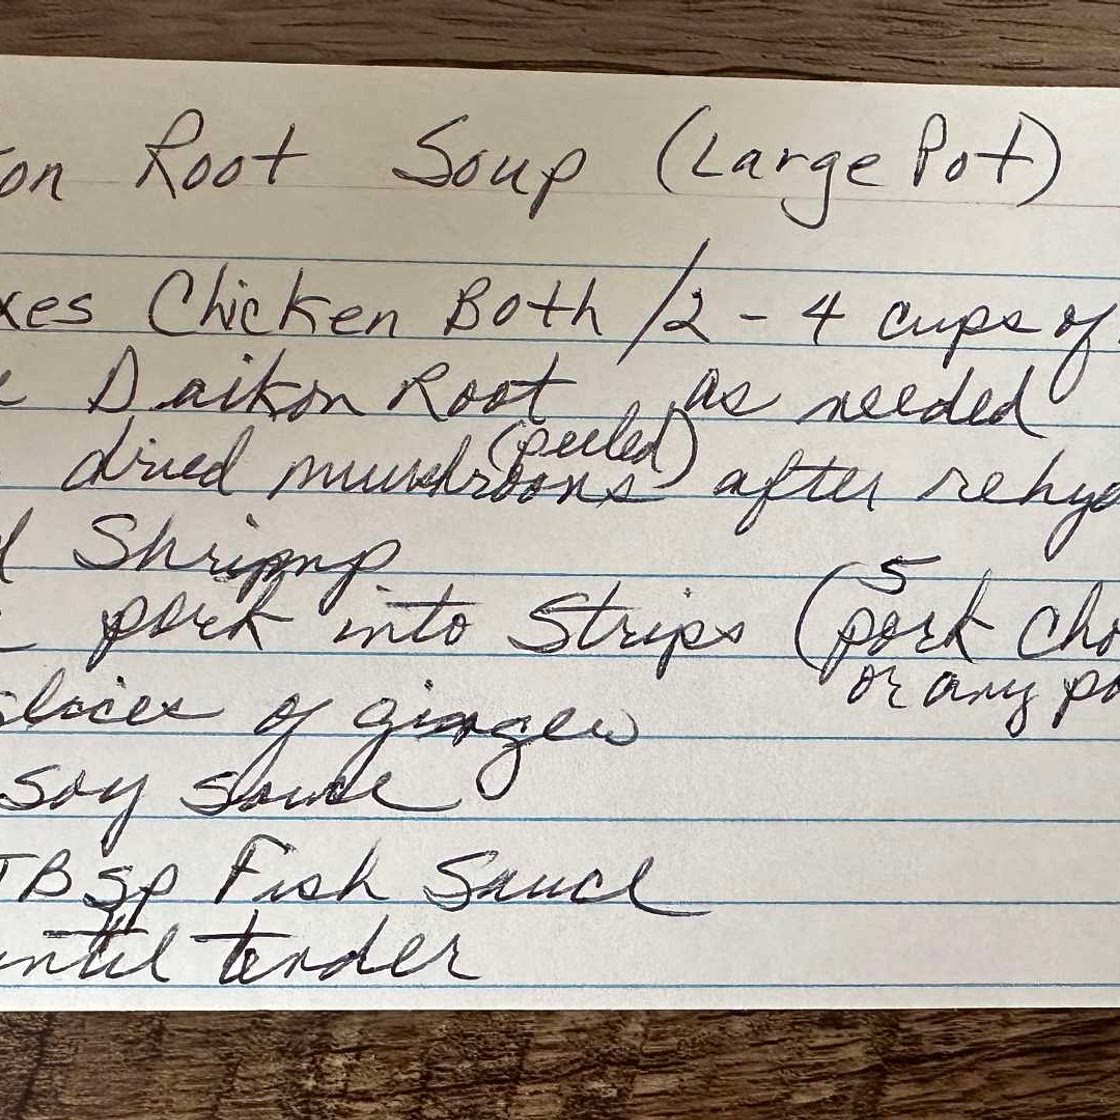 on Root Soup (Large Pot)
xes Chicken Both / 2 - 4 cups of
Daikon Root as needed
(peeled)
dried mushrooms after rehyd
Shrimp
5
pork into Strips (pork Cho
or any po
slices of ginger
soy sauce
TBsp Fish Sauce
until tender